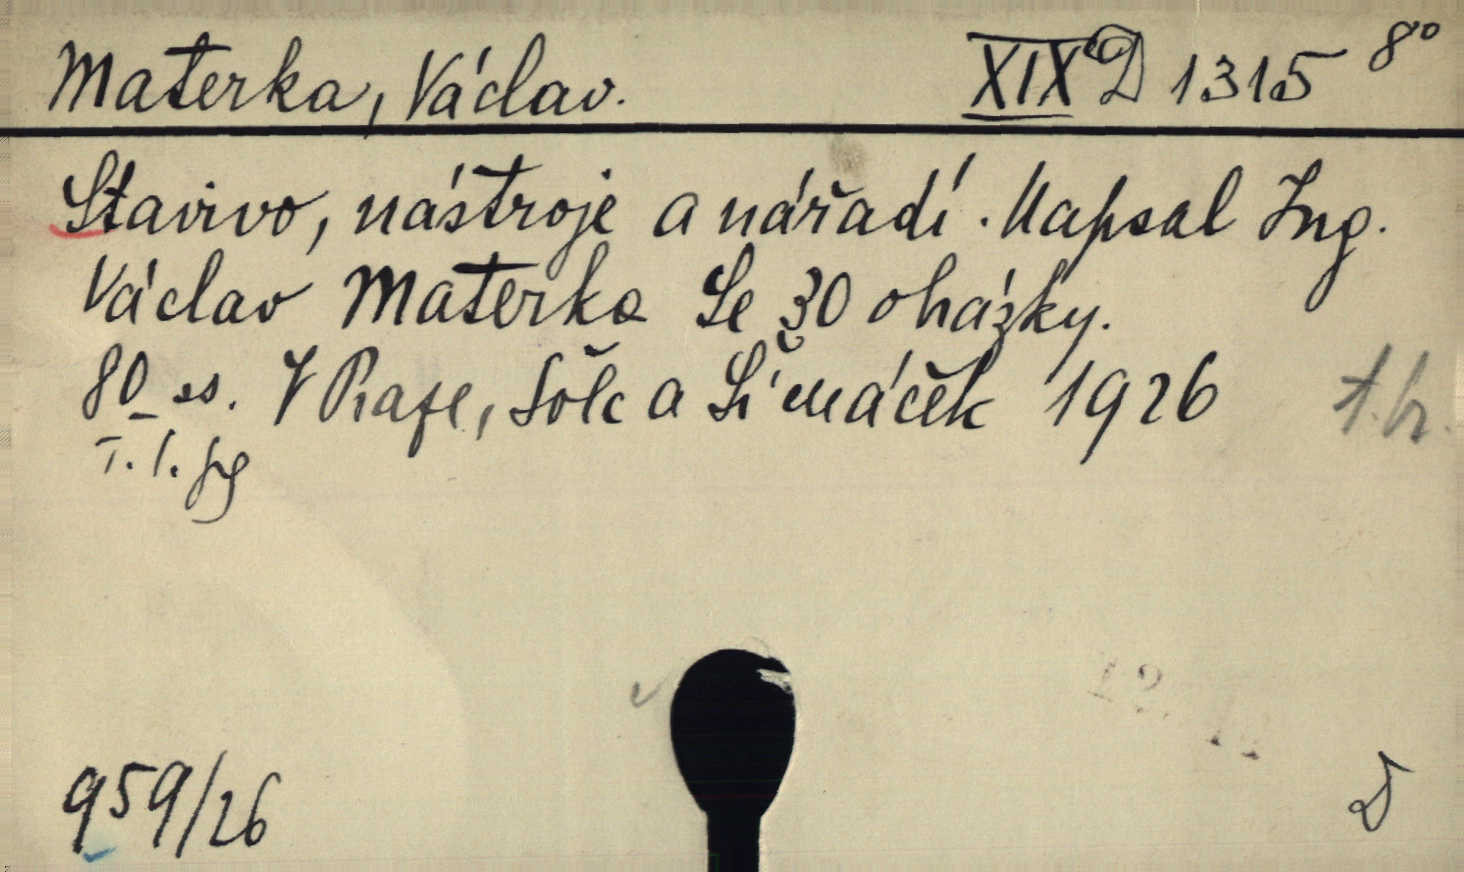 Materka, Václav. XIX D 1315 8°
Stavivo, nástroje a nářadí. Napsal Ing.
Václav Materka Se 30 obrázky.
80 s. V Praze, Šolc a Šimáček 1926
959/26